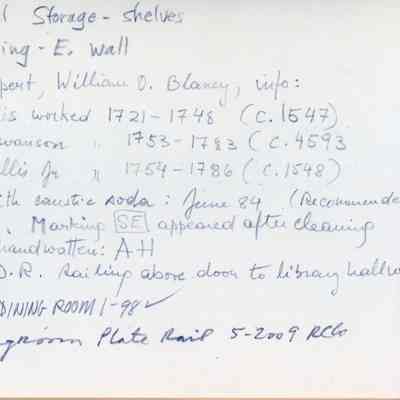 Storage - shelves
ing - E. Wall
pert, William O. Blaney, info:
is worked 1721-1748 (C.1547)
wanson " 1753-1783 (C.4593
llis Jr " 1754-1786 (C.1548)
ith caustic soda: June 84 (Recommende
. Marking SE appeared after cleaning
handwritten: AH
D.R. railing above door to library hallw
DINING ROOM 1-98 ✓
groom Plate Rail 5-2009 RCG